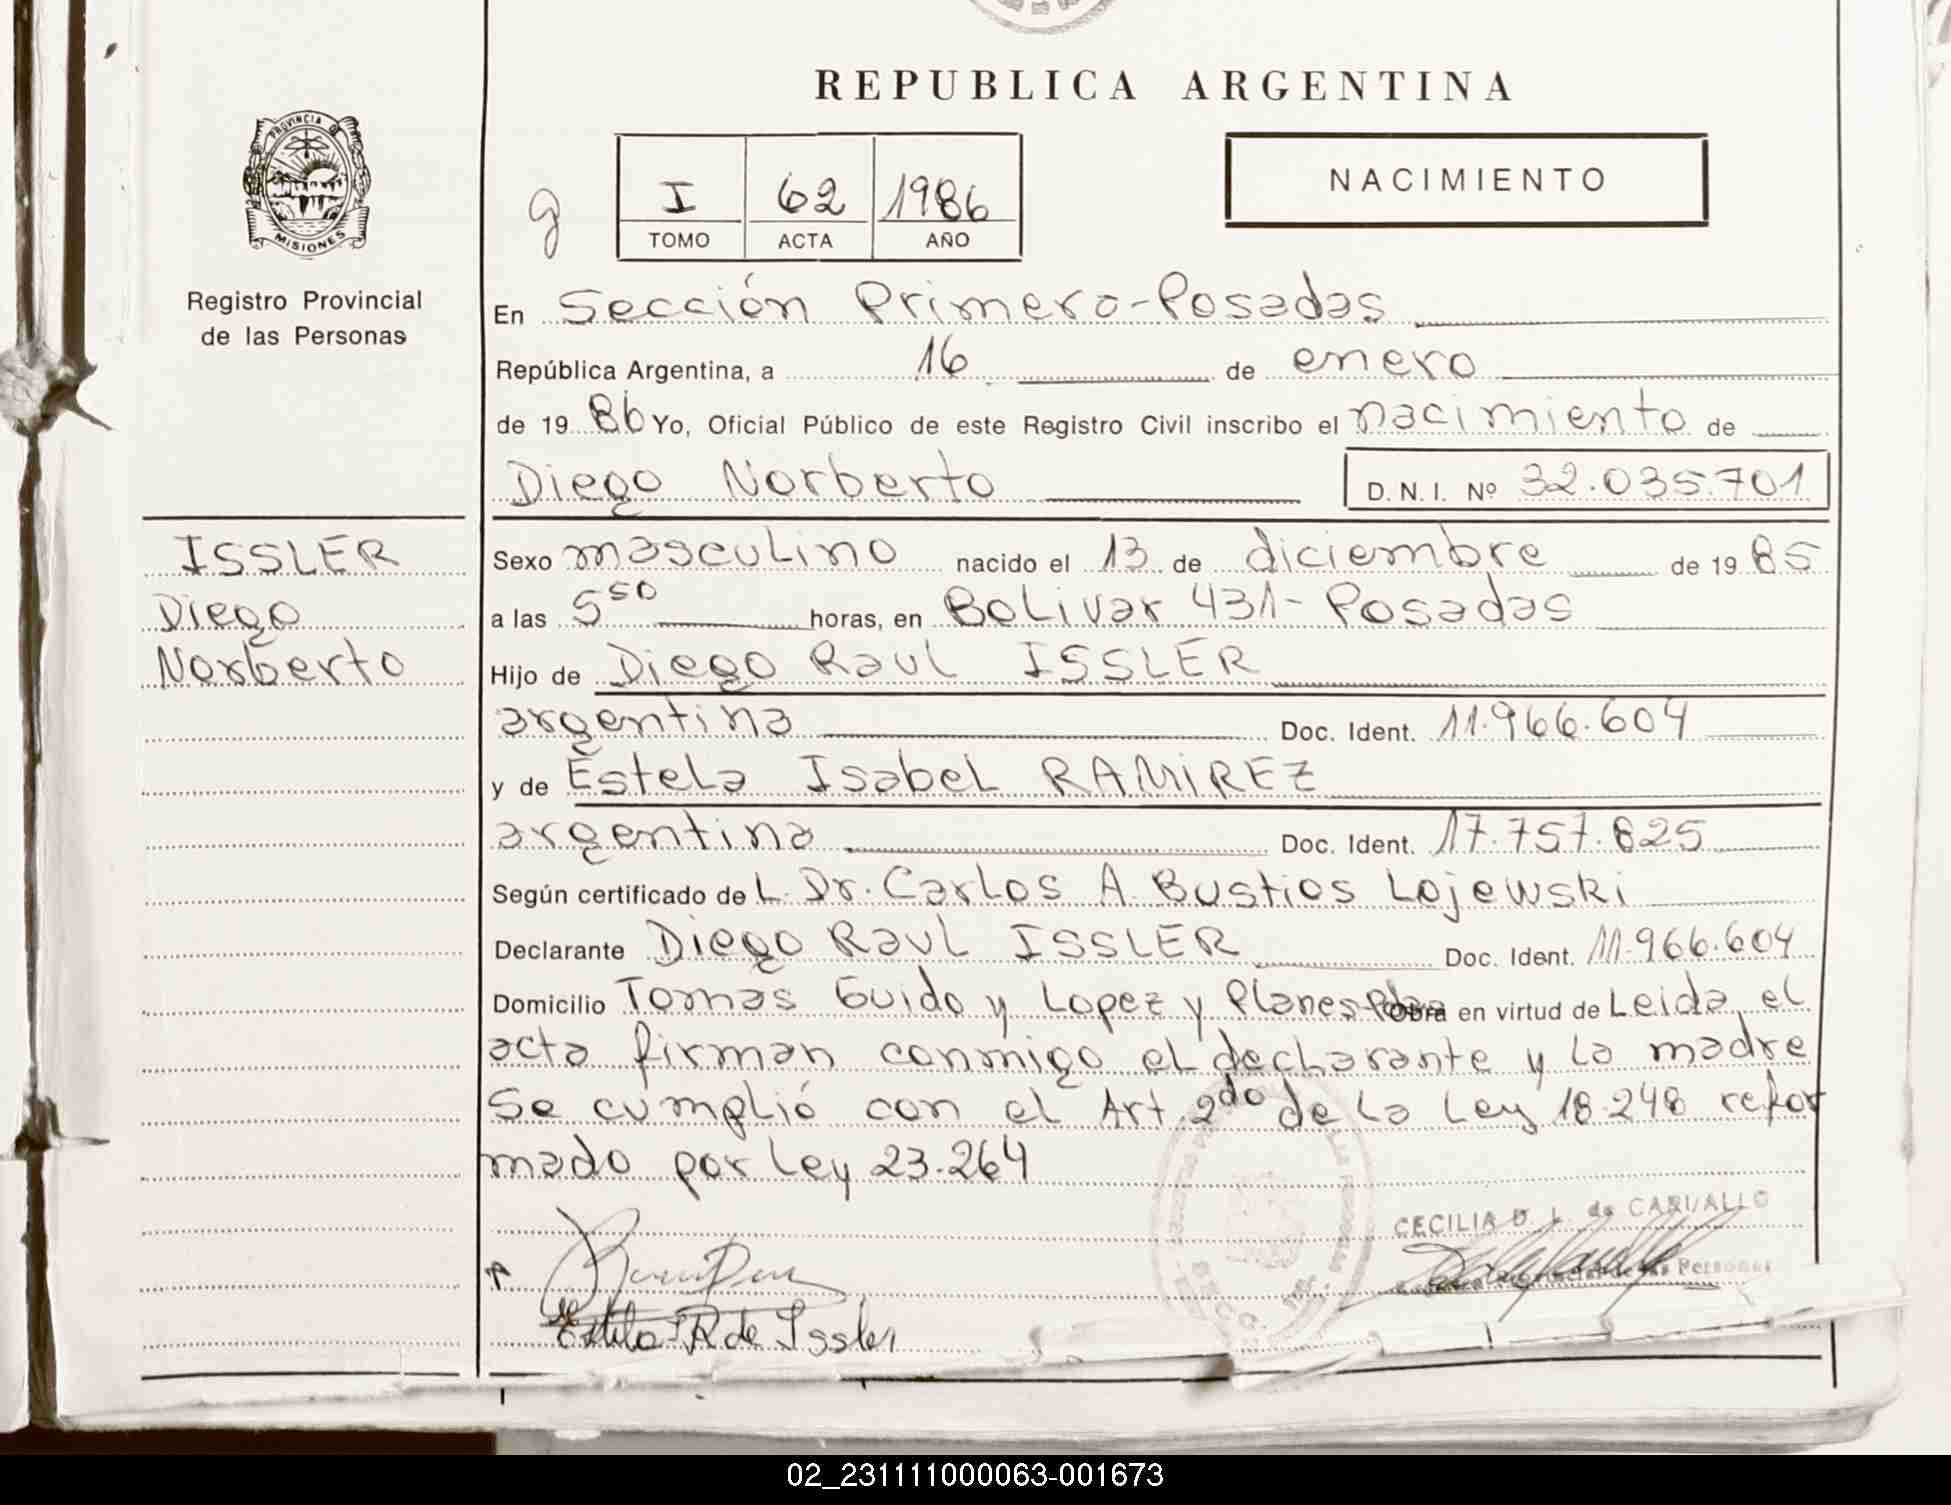 REPUBLICA ARGENTINA
PROVINCIA DE
MISIONES
Registro Provincial
de las Personas
g
I 62 1986
TOMO ACTA AÑO
NACIMIENTO
En Sección Primero-Posadas
República Argentina, a 16 de enero
de 1986 Yo, Oficial Público de este Registro Civil inscribo el nacimiento de
Diego Norberto D.N.I. Nº 32.035.701
ISSLER
Diego
Norberto
Sexo masculino nacido el 13 de diciembre de 1985
a las 5 50 horas, en Bolivar 431- Posadas
Hijo de Diego Raul ISSLER
argentina Doc. Ident. 11.966.604
y de Estela Isabel RAMIREZ
argentina Doc. Ident. 17.757.825
Según certificado de L. Dr. Carlos A. Bustios Lojewski
Declarante Diego Raul ISSLER Doc. Ident. 11.966.604
Domicilio Tomas Guido y Lopez y Planes Obra en virtud de Leida el
acta firman conmigo el declarante y la madre
Se cumplió con el Art. 2do de la Ley 18.248 refor
mado por Ley 23.264
CECILIA D. L. de CARVALLO
de las Personas
Estela I R de Issler
02_231111000063-001673